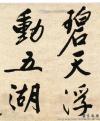 碧天浮
動五湖